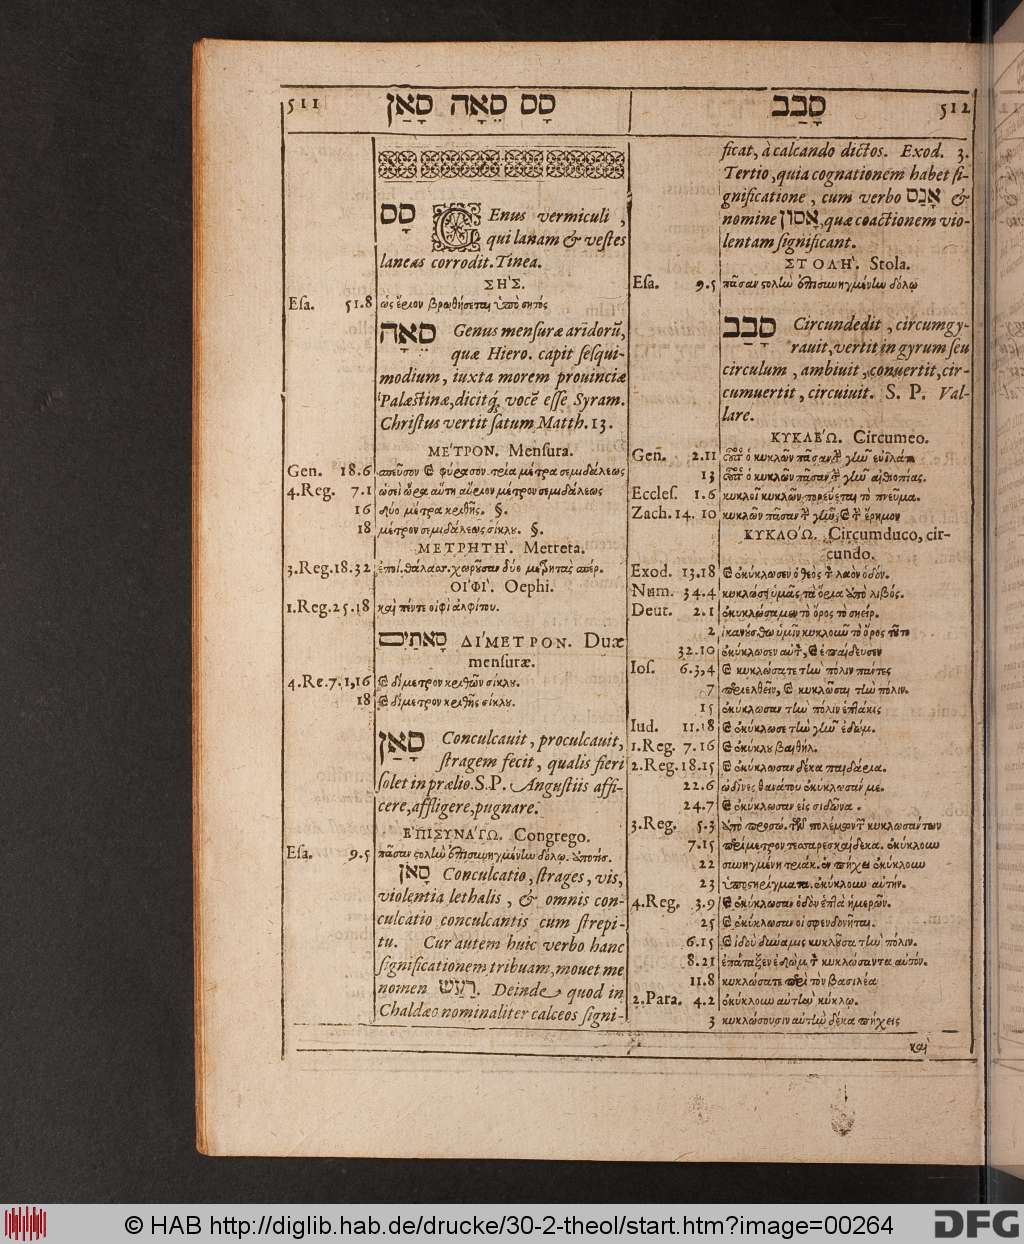 511 סָס סְאָה סָאַן
סָבַב 512
סָס GEnus vermiculi,
qui lanam & vestes
laneas corrodit. Tinea.
ΣΗ'Σ.
Esa. 51.8 ὡς ἔριον βρωθήσεται ὑπὸ σητός
סְאָה Genus mensuræ aridorũ,
quæ Hiero. capit sesqui-
modium, iuxta morem prouinciæ
Palæstinæ, dicitq́, vocẽ esse Syram.
Christus vertit satum Matth. 13.
ΜΕ'ΤΡΟΝ. Mensura.
Gen. 18.6 σπεῦσον καὶ φύρασον τρία μέτρα σεμιδάλεως
4.Reg. 7.1 ὡσεὶ ὥρα αὕτη αὔριον μέτρον σεμιδάλεως
16 δύο μέτρα κριθῆς. §.
18 μέτρον σεμιδάλεως σίκλου. §.
ΜΕΤΡΗΤΗ'. Metreta.
3.Reg.18.32
ΟΙ'ΦΙ'. Oephi.
1.Reg.25.18 καὶ πέντε οἰφὶ ἀλφίτου.
סָאתַיִם ΔΙ'ΜΕΤΡΟΝ. Duæ
mensuræ.
4.Re.7.1,16 καὶ δίμετρον κριθῶν σίκλου.
18 καὶ δίμετρον κριθῆς σίκλου.
סָאַן Conculcauit, proculcauit,
stragem fecit, qualis fieri
solet in prælio. S.P. Angustiis affi-
cere, affligere, pugnare.
Ε'ΠΙΣΥΝΑ'ΓΩ. Congrego.
Esa. 9.5 πᾶσαν στολὴν ἐπισυνηγμένην δόλῳ.
סָאֹן Conculcatio, strages, vis,
violentia lethalis, & omnis con-
culcatio conculcantis cum strepi-
tu. Cur autem huic verbo hanc
significationem tribuam, mouet me
nomen רַעַשׁ. Deinde quod in
Chaldæo nominaliter calceos signi-
ficat, à calcando dictos. Exod. 3.
Tertio, quia cognationem habet si-
gnificatione, cum verbo אָנַס &
nomine אָסוֹן, quæ coactionem vio-
lentam significant.
ΣΤΟΛΗ'. Stola.
Esa. 9.5 πᾶσαν στολὴν ἐπισυνηγμένην δόλῳ
סָבַב Circundedit, circumgy-
rauit, vertit in gyrum seu
circulum, ambiuit, conuertit, cir-
cumuertit, circuiuit. S. P. Val-
lare.
ΚΥΚΛΕ'Ω. Circumeo.
Geñ. 2.11 οὗτος ὁ κυκλῶν πᾶσαν τὴν γῆν εὐιλάτ
13 οὗτος ὁ κυκλῶν πᾶσαν τὴν γῆν αἰθιοπίας.
Eccles. 1.6 κυκλοῖ κυκλῶν πορεύεται τὸ πνεῦμα.
Zach. 14. 10 κυκλῶν πᾶσαν τὴν γῆν, καὶ τὴν ἔρημον
ΚΥΚΛΟ'Ω. Circumduco, cir-
cundo.
Exod. 13.18 καὶ ἐκύκλωσεν ὁ θεὸς τὸν λαὸν ὁδόν.
Num. 34.4 κυκλώσει ὑμᾶς τὰ ὅρια ἀπὸ λιβός.
Deut. 2.1 ἐκυκλώσαμεν τὸ ὄρος τὸ σηείρ.
2 ἱκανούσθω ὑμῖν κυκλοῦν τὸ ὄρος τοῦτο
32.10 ἐκύκλωσεν αὐτὸν, καὶ ἐπαίδευσεν
Ios. 6.3,4 καὶ κυκλώσατε τὴν πόλιν πάντες
7 περιελθεῖν, καὶ κυκλῶσαι τὴν πόλιν.
15 ἐκύκλωσαν τὴν πόλιν ἑπτάκις
Iud. 11.18 καὶ ἐκύκλωσε τὴν γῆν ἐδώμ.
1.Reg. 7.16 καὶ ἐκύκλου βαιθήλ.
2.Reg.18.15 καὶ ἐκύκλωσαν δέκα παιδάρια.
22.6 ὠδῖνες θανάτου ἐκύκλωσάν με.
24.7 καὶ ἐκύκλωσαν εἰς σιδῶνα.
3.Reg. 5.3 ἀπὸ προσώ. τῶν πολέμων τῶν κυκλωσάντων
7.15 περίμετρον τεσσαρεσκαίδεκα. ἐκύκλουν
22 συνηγμένη τριάκ. ἐν πήχει ἐκύκλουν
23 ὑποστηρίγματα. ἐκύκλουν αὐτήν.
4.Reg. 3.9 καὶ ἐκύκλωσαν ὁδὸν ἑπτὰ ἡμερῶν.
25 καὶ ἐκύκλωσαν οἱ σφενδονῆται.
6.15 καὶ ἰδοὺ δύναμις κυκλοῦσα τὴν πόλιν.
8.21 ἐπάταξεν ἐδὼμ τὸν κυκλώσαντα αὐτόν.
11.8 κυκλώσατε περὶ τὸν βασιλέα
2.Para. 4.2 ἐκύκλουν αὐτὴν κύκλῳ.
3 κυκλώσουσιν αὐτὴν δέκα πήχεις
καὶ
© HAB http://diglib.hab.de/drucke/30-2-theol/start.htm?image=00264
DFG